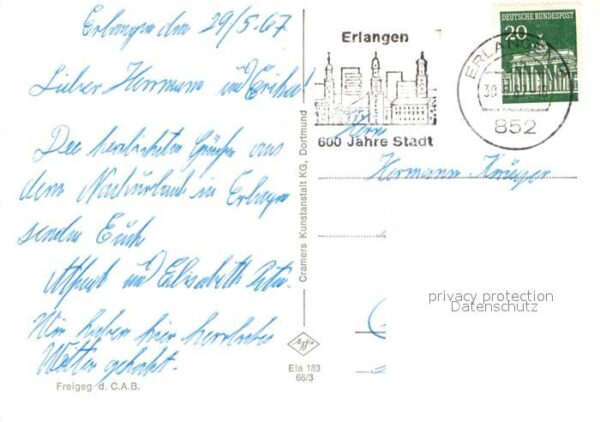 Erlangen den 29/5.67
Lieber Hermann und Erika!
Die herzlichsten Grüße aus
dem Nachurlaub in Erlangen
senden Euch
und Elisabeth
Wir haben hier herrliches
Wetter gehabt.
Freigeg d. C.A.B.
Cramers Kunstanstalt KG, Dortmund
Agfa
Ela 183
66/3
Erlangen
600 Jahre Stadt
ERLANGEN
852
20
DEUTSCHE BUNDESPOST
Herrn
Hermann Krüger
privacy protection
Datenschutz